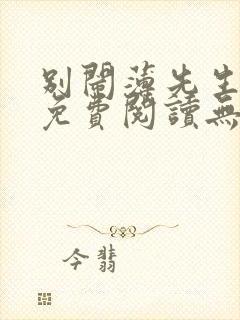 別鬧薄先生
免費閱讀無
今翡